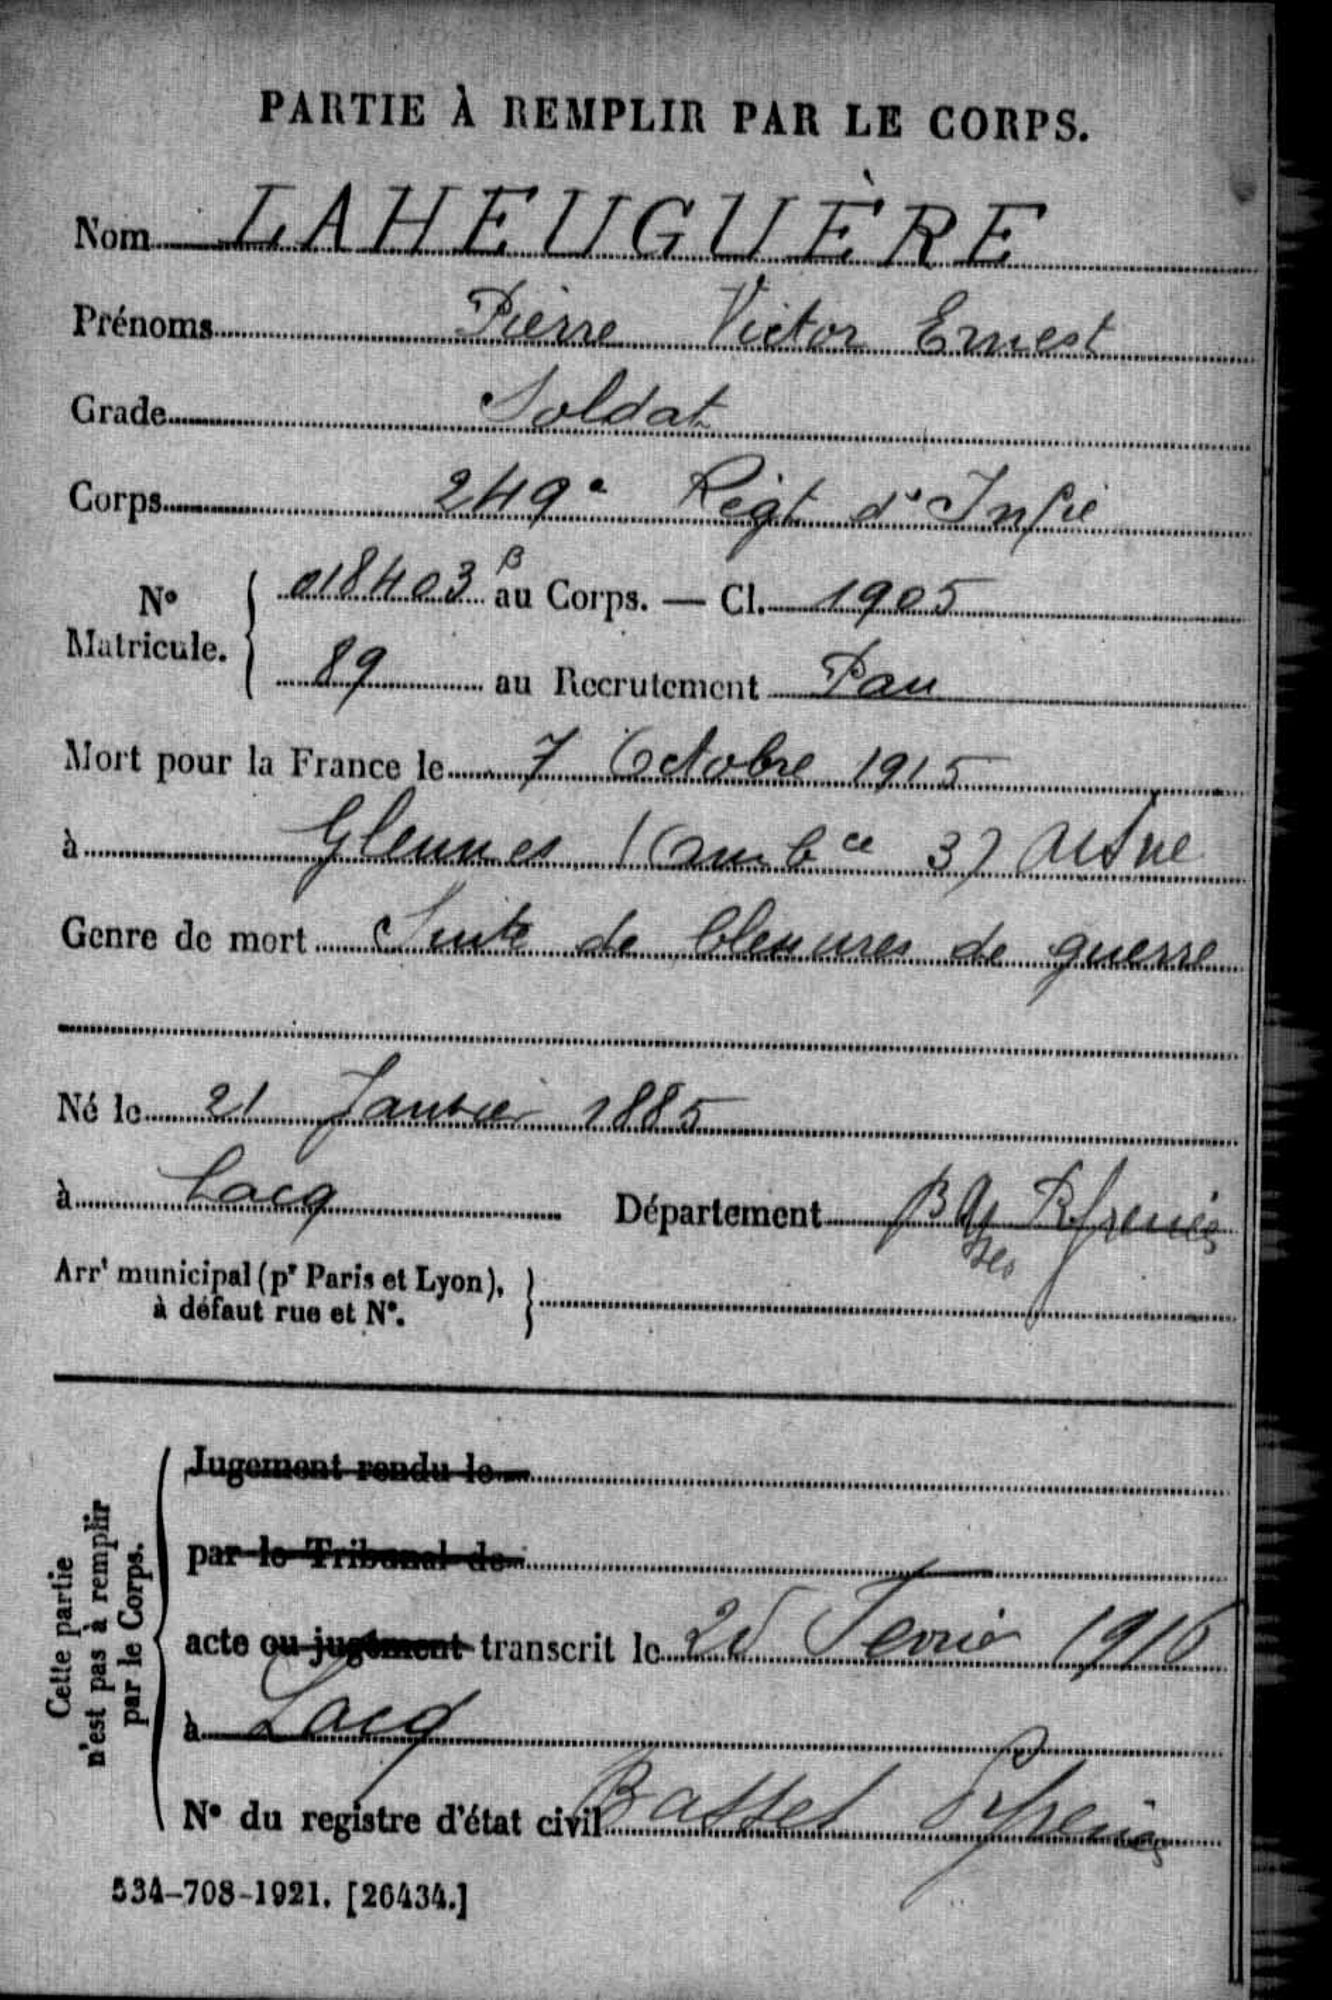 PARTIE À REMPLIR PAR LE CORPS.
Nom LAHEUGUÈRE
Prénoms Pierre Victor Ernest
Grade Soldat
Corps 249e Régt d'Infie
No Matricule. 018403 B au Corps. — Cl. 1905
89 au Recrutement Pau
Mort pour la France le 7 Octobre 1915
à Glennes (Ambce 3) Aisne
Genre de mort Suite de blessures de guerre
Né le 21 Janvier 1885
à Lacq Département Bses Pyrenées
Arrt municipal (pr Paris et Lyon),
à défaut rue et No.
Cette partie
n'est pas à remplir
par le Corps.
Jugement rendu le
par le Tribunal de
acte ou jugement transcrit le Fevrier 1916
à Lacq
No du registre d'état civil Basses Pyrenées
534-708-1921. [26434.]